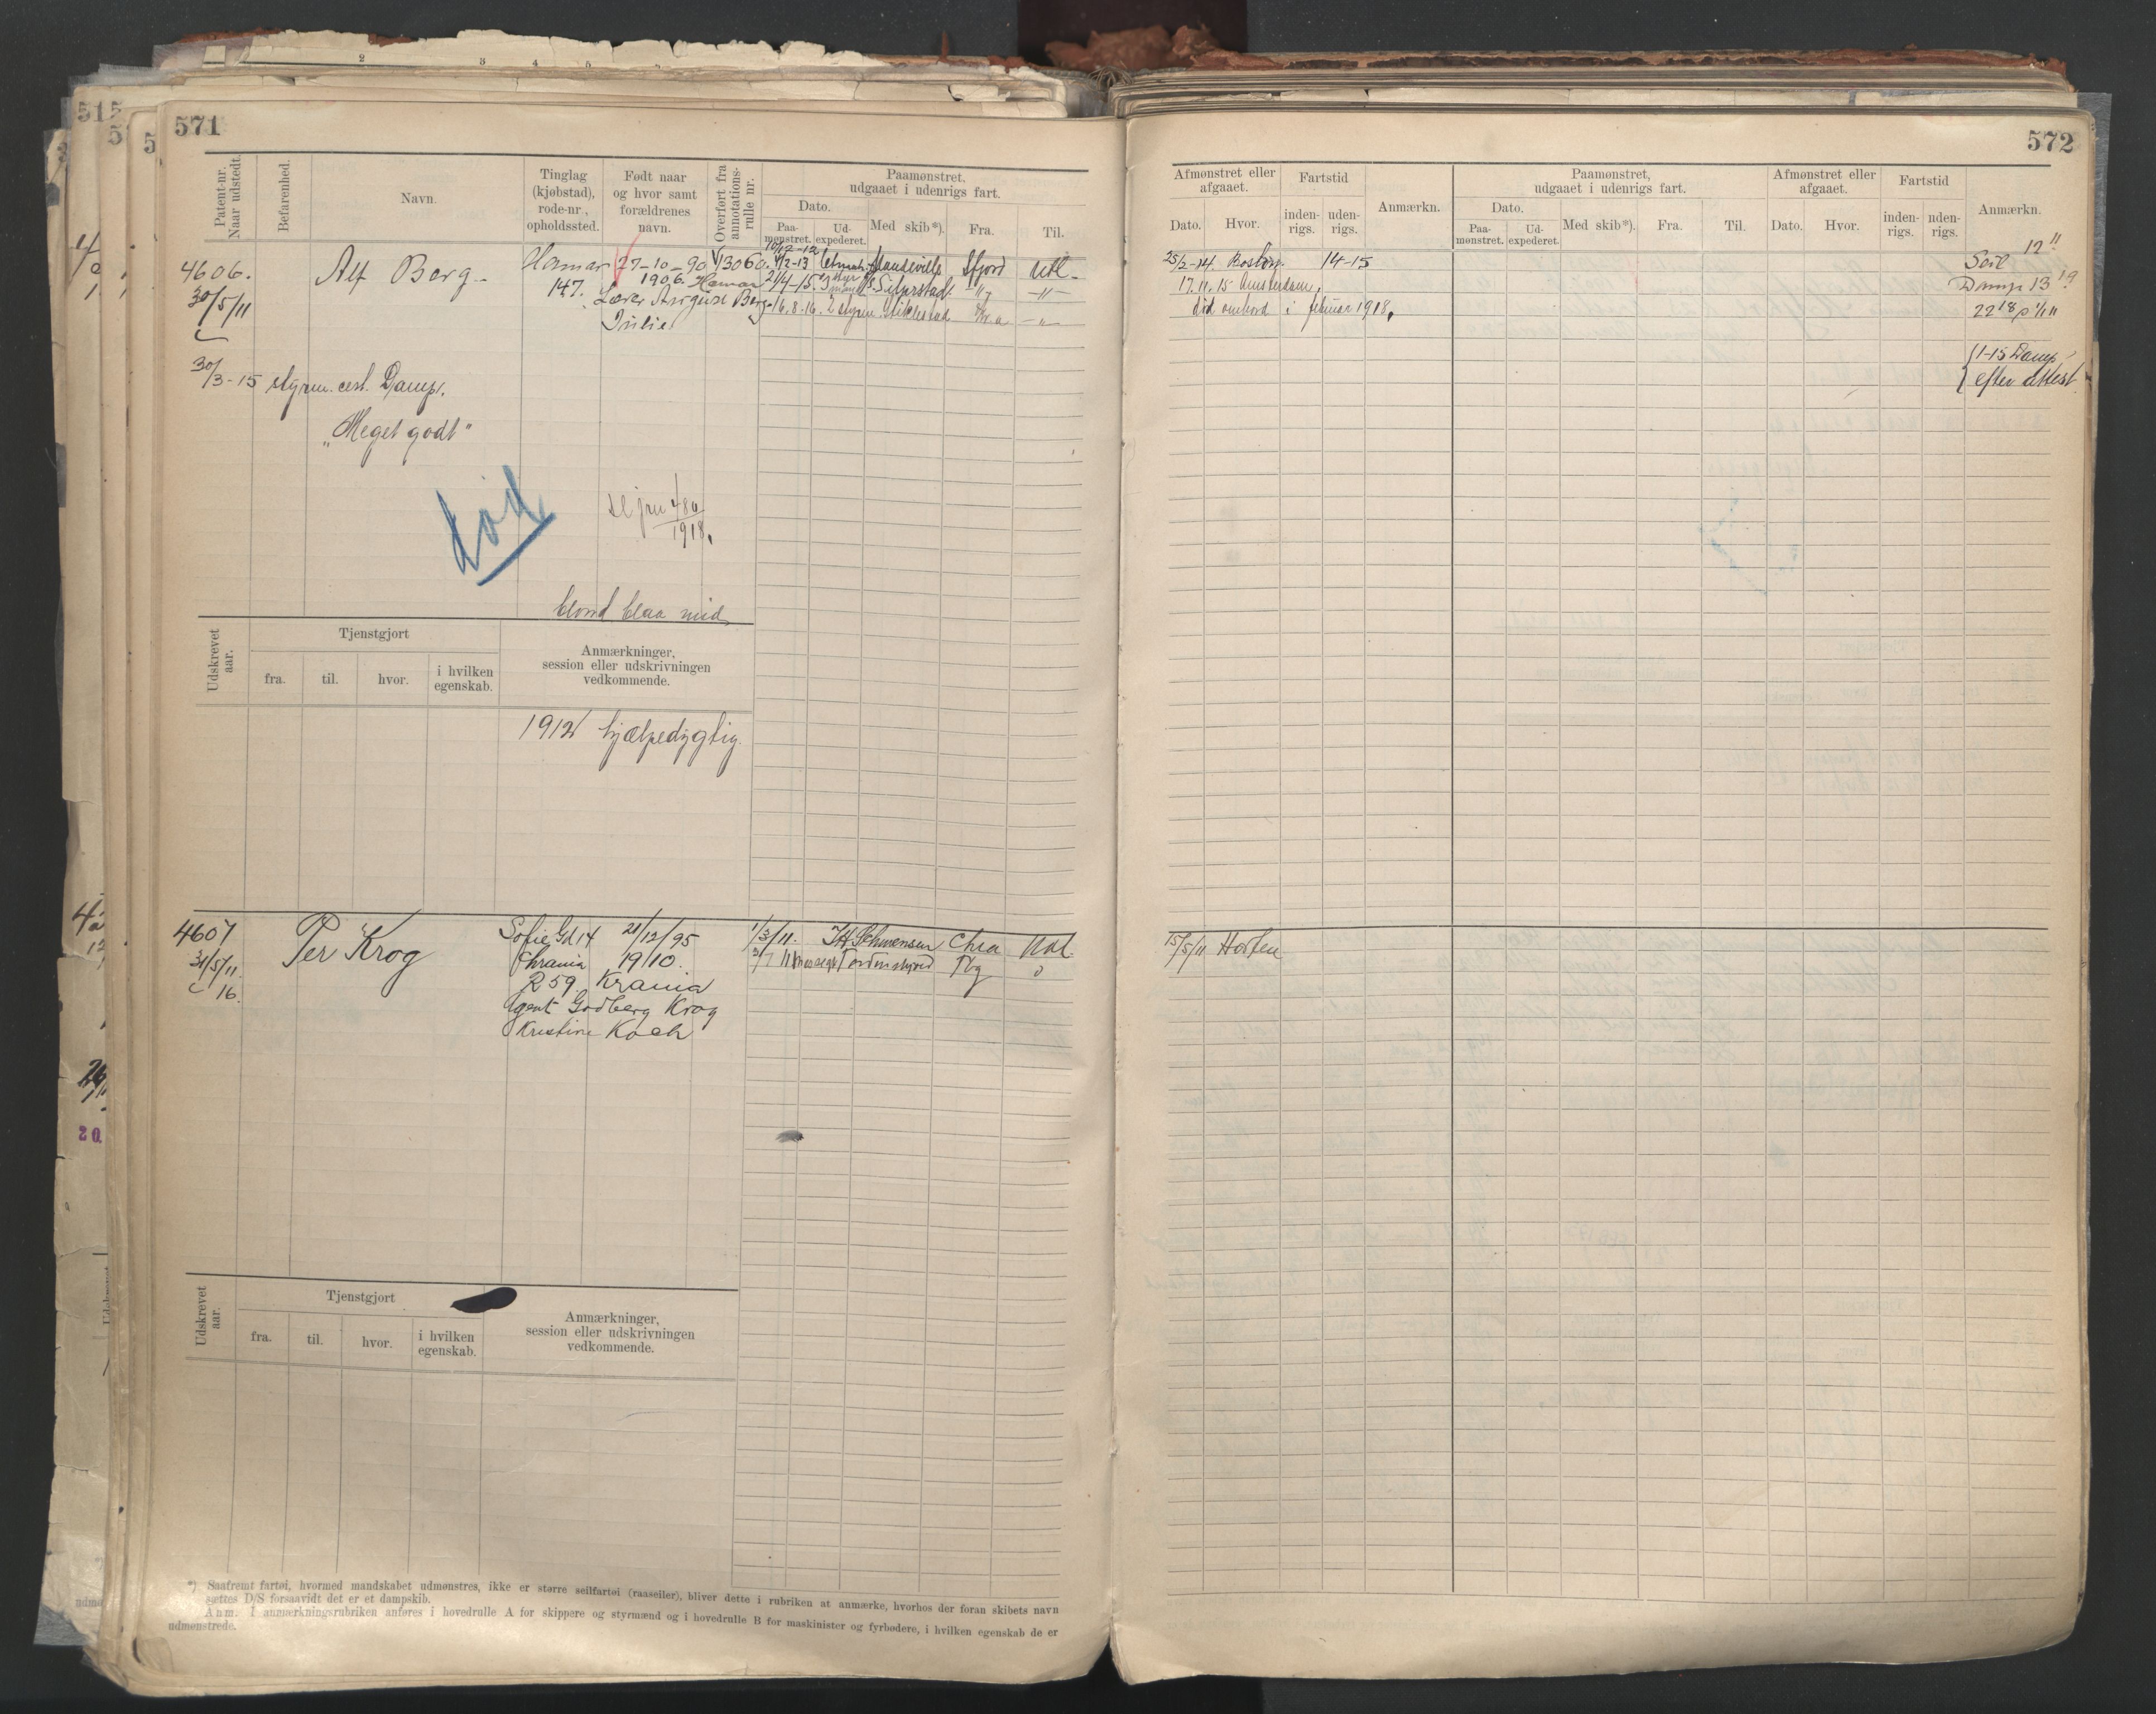 571
Patent-nr. Naar udstedt.
Befarenhed.
Navn.
Tinglag (kjøbstad), rode-nr., opholdssted.
Født naar og hvor samt forældrenes navn.
Overført fra annotations-rulle nr.
Paamønstret, udgaaet i udenrigs fart.
Dato.
Paa-mønstret.
Ud-expederet.
Med skib*).
Fra.
Til.
4606.
30/5/11
Alf Borg
Hamar
147.
27-10-90
1906. Hamar
Lærer August Borg
Julie
13060.
10/12-12
4/2-13
Mandeville
Sfjord
Utl.
21/4-15.
-"-
-"-
16.8.16. 2 styrm. Stiklestad
Kr.a
-"-
30/3-15 styrm. cert. Damp.
"Meget godt"
død
480/1918.
blond blaa mid.
Udskrevet aar.
Tjenstgjort
fra.
til.
hvor.
i hvilken egenskab.
Anmærkninger, session eller udskrivningen vedkommende.
1912 hjælpedygtig.
4607
31/5/11.
16.
Per Krog
Sofie Gd 14
Chrania
R 59.
21/12/95
19/10.
Krania
Agent Godberg Krog
Kristine Koch
1/3/11.
Chra
Tordenskjold
Tbg
Udskrevet aar.
Tjenstgjort
fra.
til.
hvor.
i hvilken egenskab.
Anmærkninger, session eller udskrivningen vedkommende.
*) Saafremt fartøi, hvormed mandskabet udmønstres, ikke er større seilfartøi (raaseiler), bliver dette i rubriken at anmærke, hvorhos der foran skibets navn
sættes D/S forsaavidt det er et dampskib.
Anm. I anmærkningsrubriken anføres i hovedrulle A for skippere og styrmænd og i hovedrulle B for maskinister og fyrbødere, i hvilken egenskab de er
udmønstrede.
572
Afmønstret eller afgaaet.
Dato.
Hvor.
Fartstid
inden-rigs.
uden-rigs.
Anmærkn.
Paamønstret, udgaaet i udenrigs fart.
Dato.
Paa-mønstret.
Ud-expederet.
Med skib*).
Fra.
Til.
Afmønstret eller afgaaet.
Dato.
Hvor.
Fartstid
inden-rigs.
uden-rigs.
Anmærkn.
25/2-14. Boston. 14-15
17.11.15 Amsterdam.
død ombord i februar 1918.
Seil 12
Damp 13
1-15 Damp
efter attest.
15/5/11 Horten